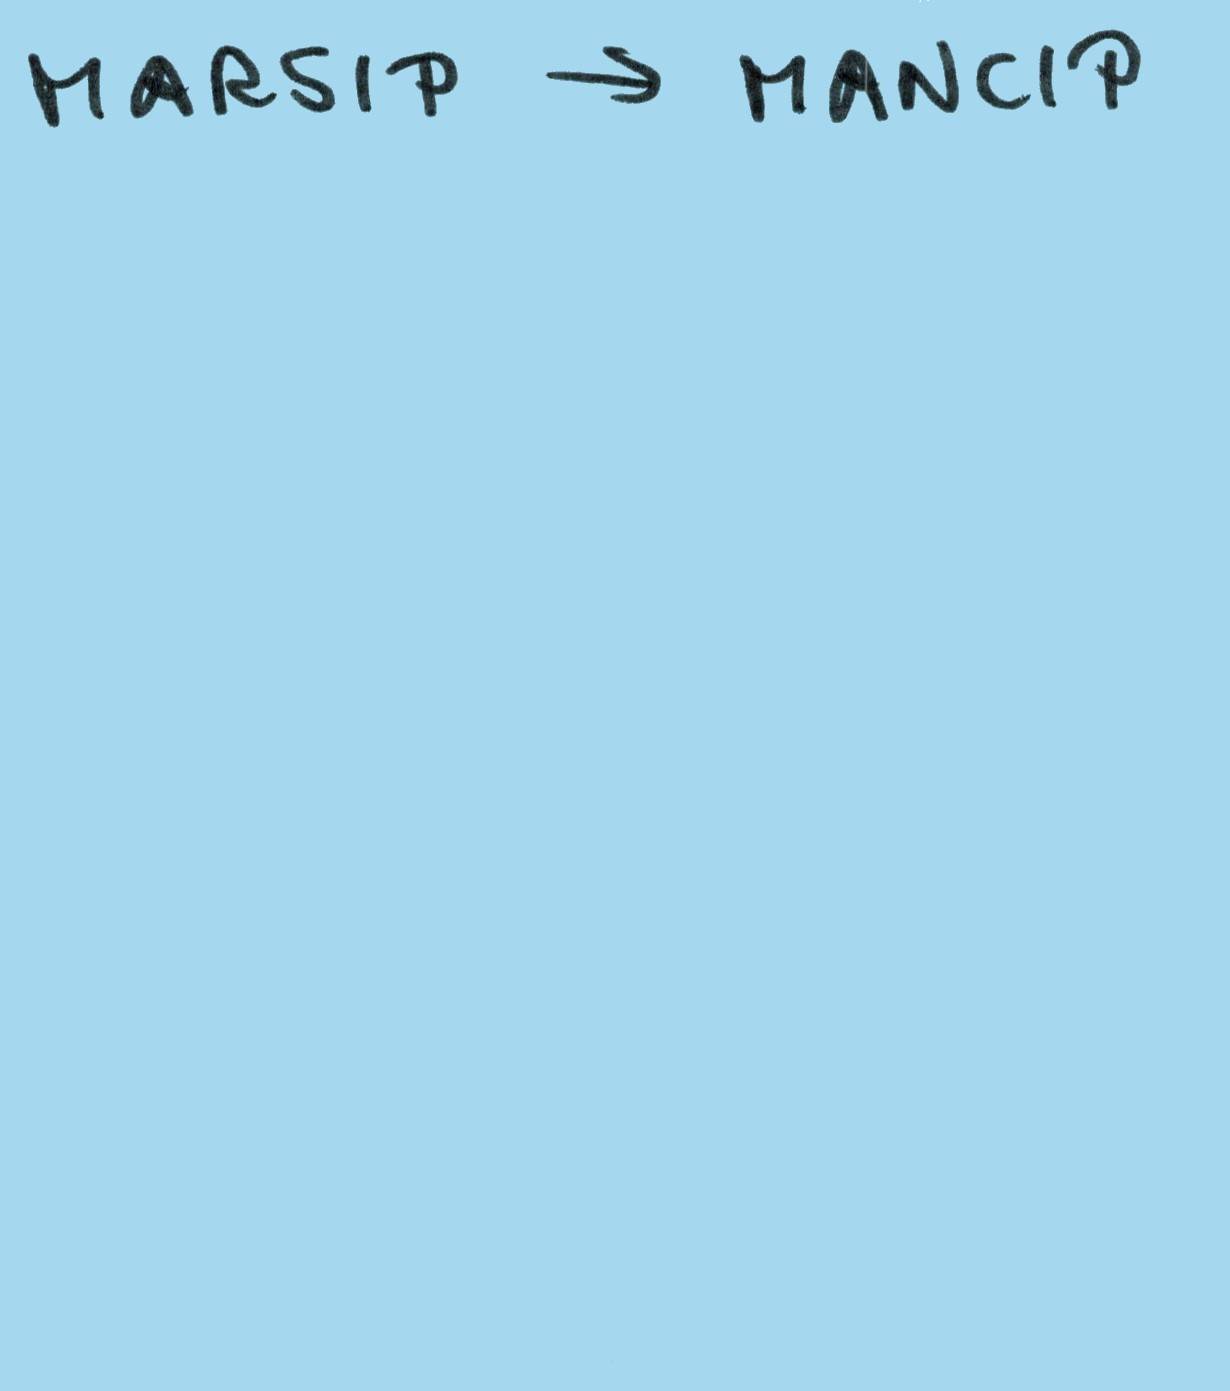 MARSIP → MANCIP